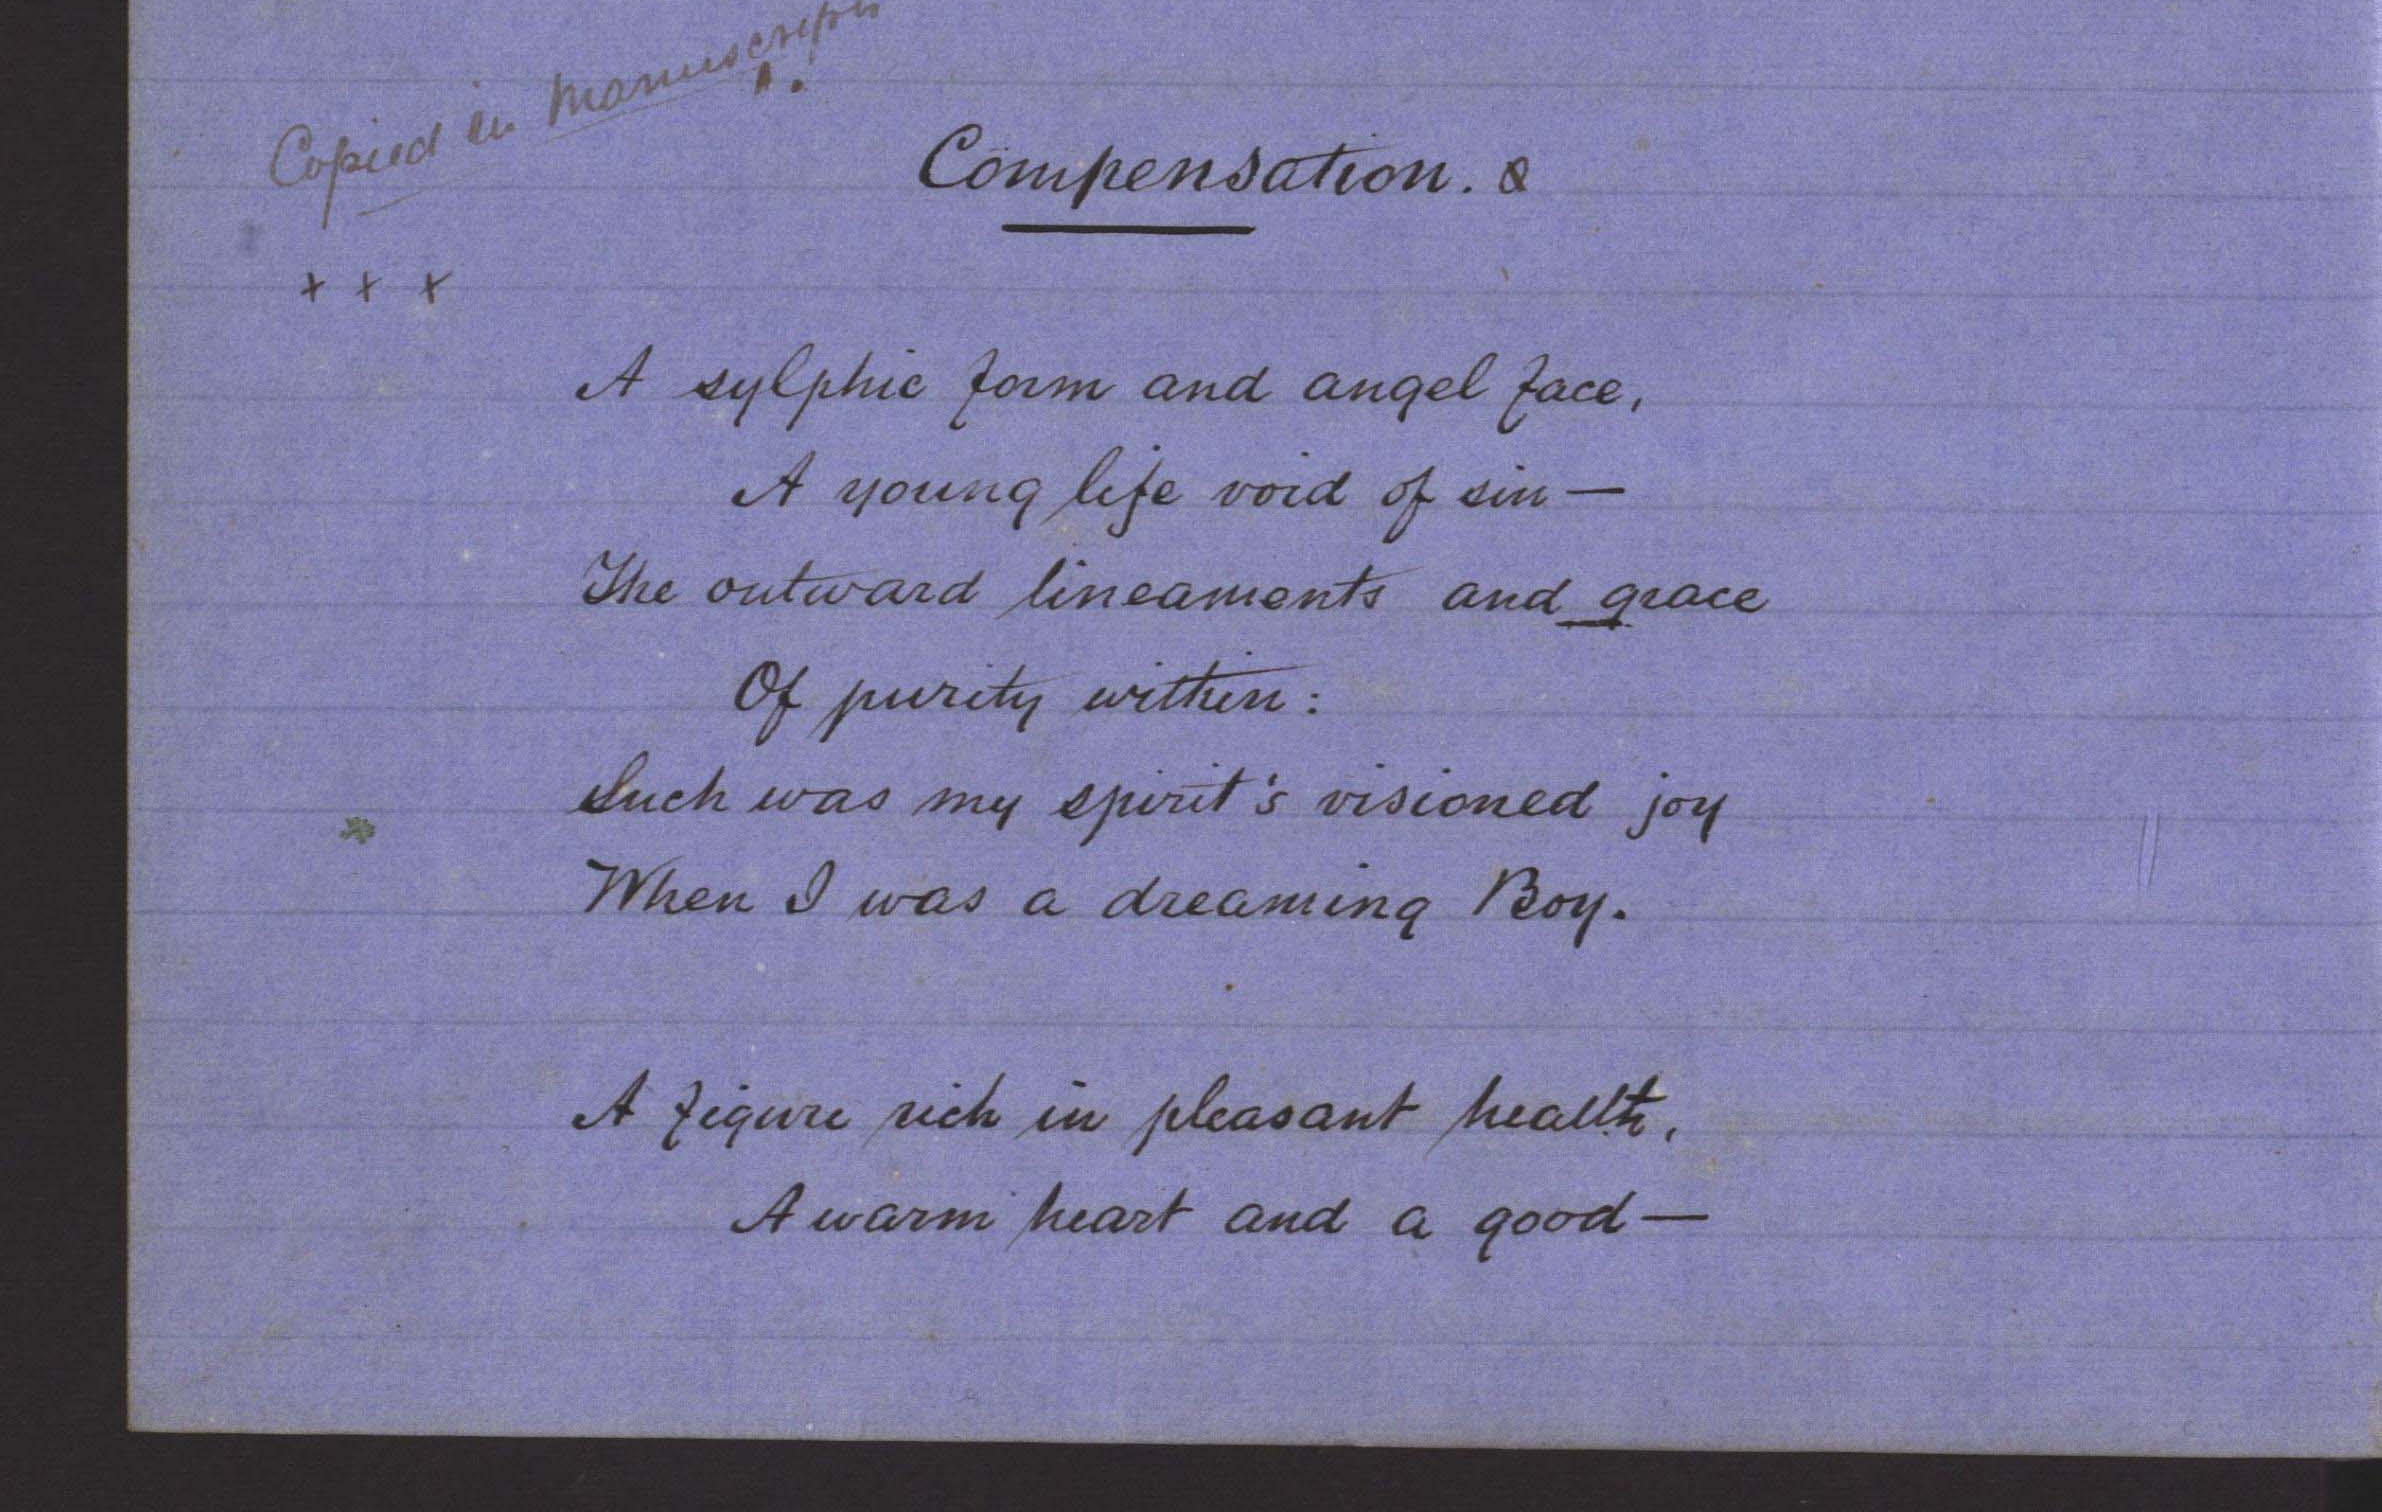 Copied in Manuscripts
Compensation. &
+ + +
A sylphic form and angel face,
A young life void of sin —
The outward lineaments and grace
Of purity within:
Such was my spirit's visioned joy
When I was a dreaming Boy.
A figure rich in pleasant health,
A warm heart and a good —